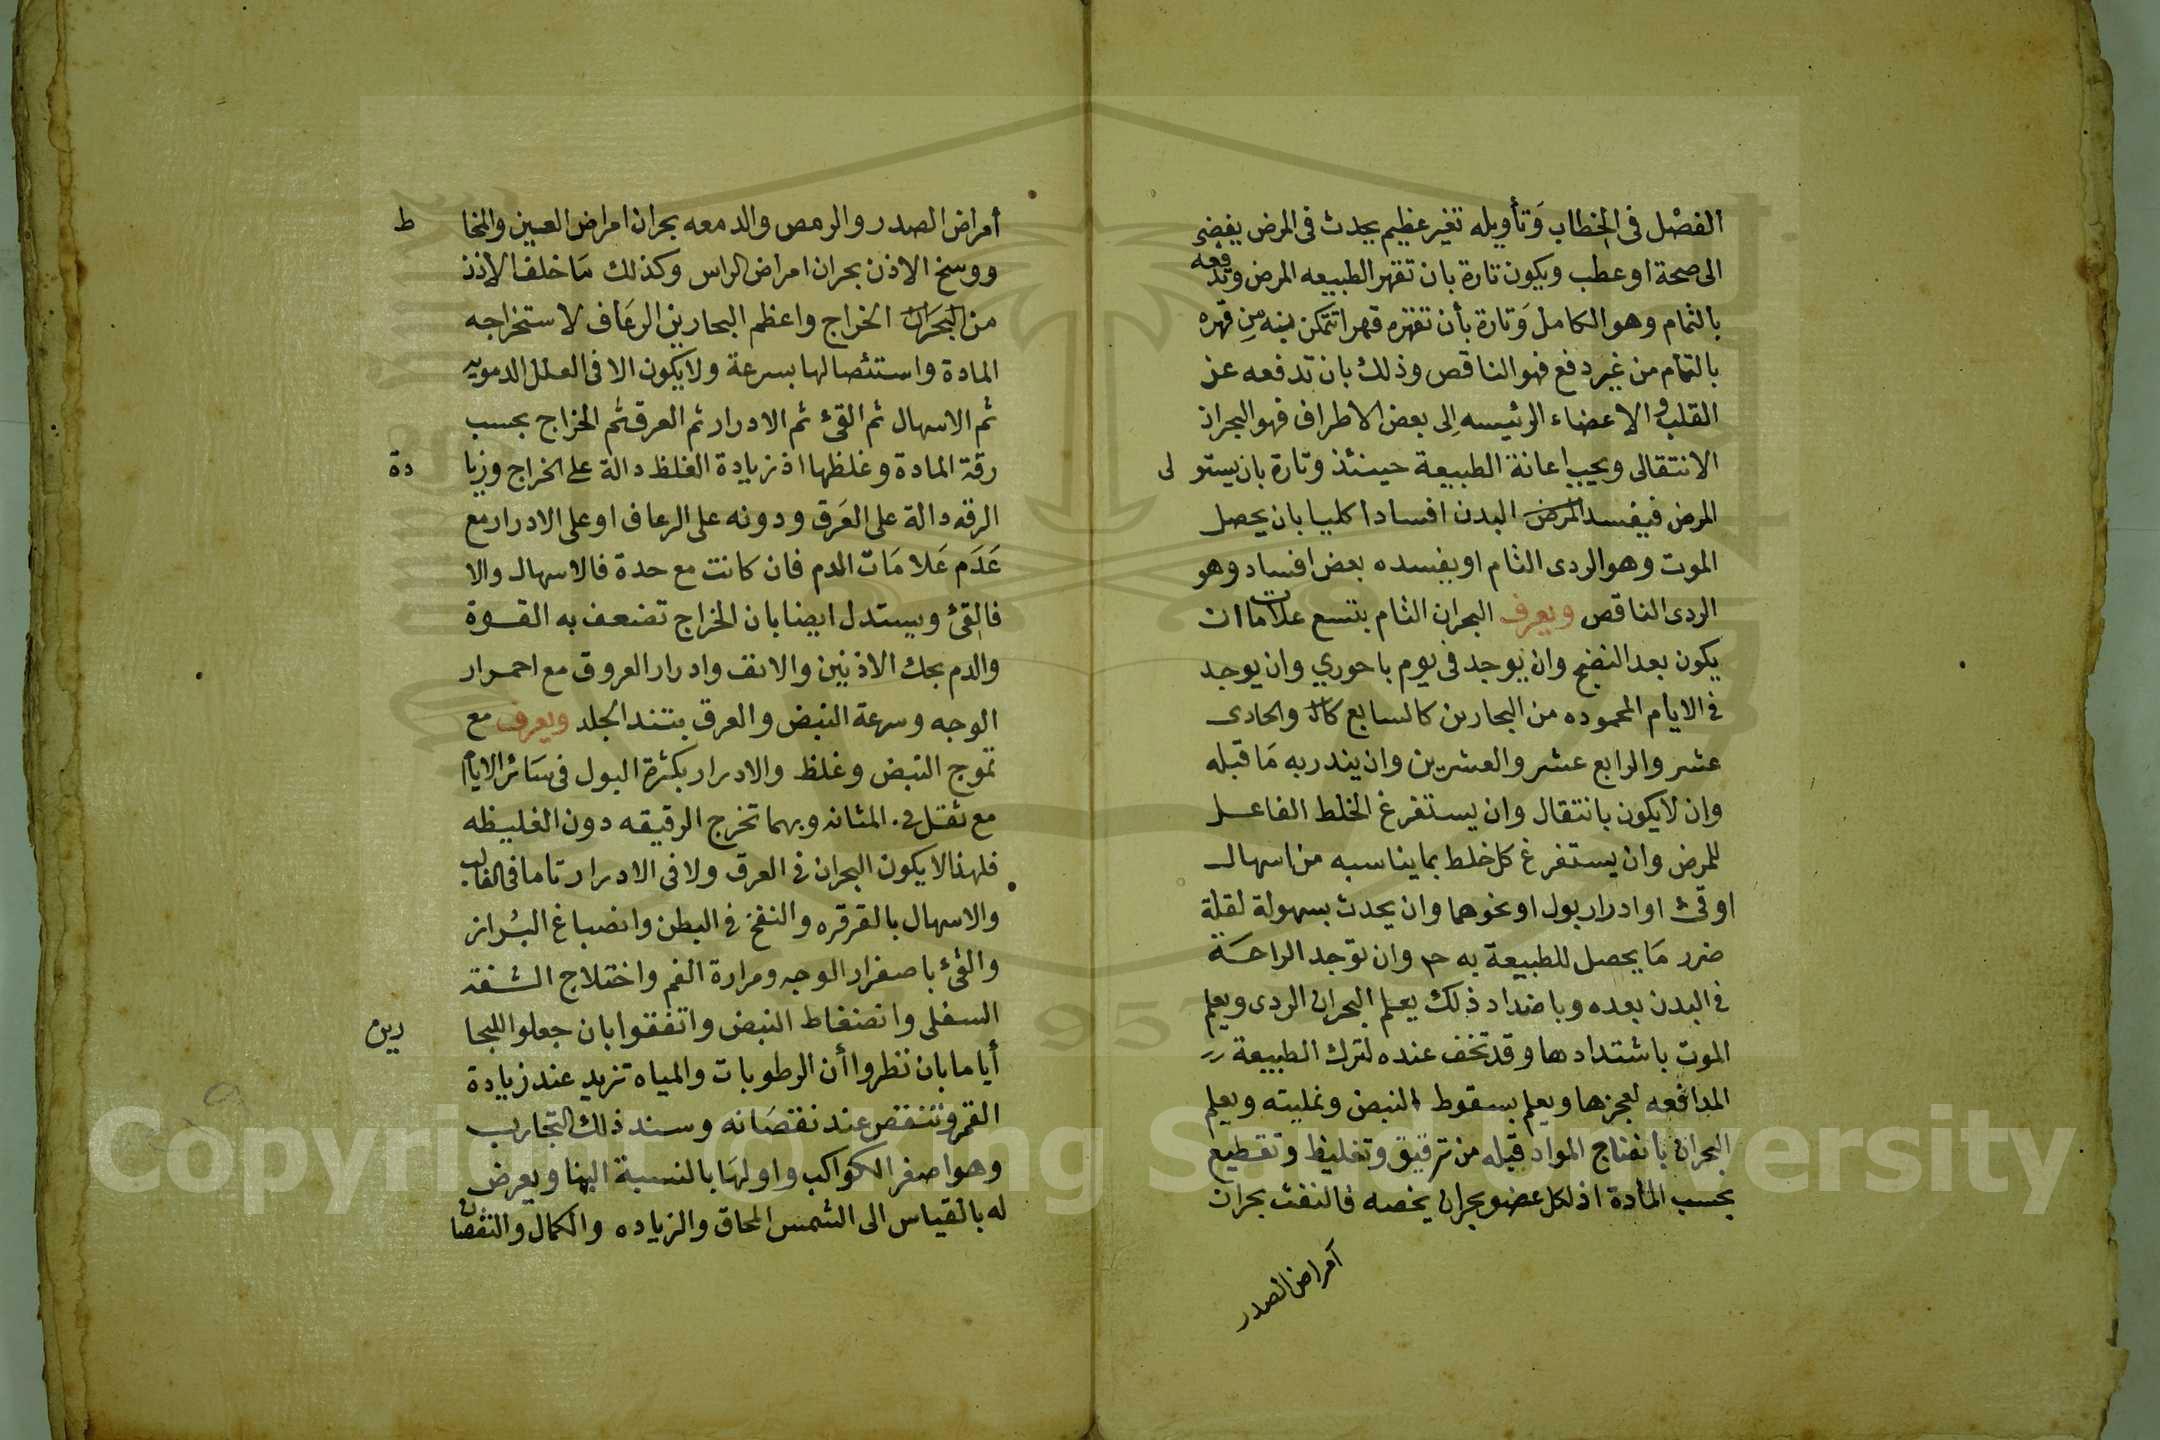 الفصل فى الخطاب وتأويله تغير عظيم يحدث فى المرض يفضى
الى صحة او عطب ويكون تارة بان تقهر الطبيعه المرض وتدفعه
بالتمام وهو الكامل وتارة بأن تقهره قهرا تتمكن منه من قهره
بالتمام من غير دفع فهو الناقص وذلك بان تدفعه عن
القلب والاعضاء الرئيسه إلى بعض الاطراف فهو البحران
الانتقالى ويجب اعانة الطبيعة حينئذ وتارة بان يستو لى
المرض فيفسد المرض البدن افسادا كليا بان يحصل
الموت وهو الردى التام او يفسده بعض افساد وهو
الردى الناقص ويعرف البحران التام بتسع علامات ان
يكون بعد النضج وان يوجد فى يوم باحوري وان يوجد
فى الايام المحموده من البحارين كالسابع كالـ والحادى
عشر والرابع عشر والعشرين وان يندر به ما قبله
وان لا يكون بانتقال وان يستفرغ الخلط الفاعل
للمرض وان يستفرغ كل خلط بما يناسبه من اسهال
او قئ او ادرار بول او نحوهما وان يحدث بسهولة لقلة
ضرر ما يحصل للطبيعة به ح وان توجد الراحة
فى البدن بعده وباضداد ذلك يعلم البحران الردى ويعلم
الموت باشتدادها وقد تخف عنده لترك الطبيعة
المدافعه لعجزها ويعلم بسقوط النبض ونمليته ويعلم
البحران بانضاج المواد قبله من ترقيق وتغليظ وتقطيع
بحسب المادة اذ لكل عضو بحران يخصه فالنفث بحران
أمراض الصدر
أمراض الصدر والرمص والدمعه بحران امراض العين والمخا ط
ووسخ الاذن بحران امراض الراس وكذلك ما خلف الاذن
من البحران الخراج واعظم البحارين الرعاف لاستخراجه
المادة واستئصالها بسرعة ولا يكون الا فى العلل الدمويه
ثم الاسهال ثم القئ ثم الادرار ثم العرق ثم الخراج بحسب
رقة المادة وغلظها اذ زيادة الغلظ دالة على الخراج وزيا دة
الرقه دالة على العرق ودونه على الرعاف او على الادرار مع
عدم علامات الدم فان كانت مع حدة فالاسهال والا
فالقئ ويستدل ايضا بان الخراج تضعف به القوة
والدم بحك الاذنين والانف وادرار العروق مع احمرار
الوجه وسرعة النبض والعرق بتند الجلد ويعرف مع
تموج النبض وغلظ والادرار بكثرة البول فى سائر الايام
مع ثقل فى المثانه وبهما تخرج الرقيقه دون الغليظه
فلهذا لا يكون البحران فى العرق ولا فى الادرار تاما فى الغالب
والاسهال بالقرقره والنفخ فى البطن وانصباغ البراز
والقئ باصفرار الوجه ومرارة الفم واختلاج الشفة
السفلى وانضغاط النبض واتفقوا بان جعلوا للبحا رين
أياما بان نظروا أن الرطوبات والمياه تزيد عند زيادة
القمر وتنقص عند نقصانه وسند ذلك التجاريب
وهو اصغر الكواكب واولها بالنسبة الينا ويعرض
له بالقياس الى الشمس المحاق والزياده والكمال والنقصان
Copyright © King Saud University
957